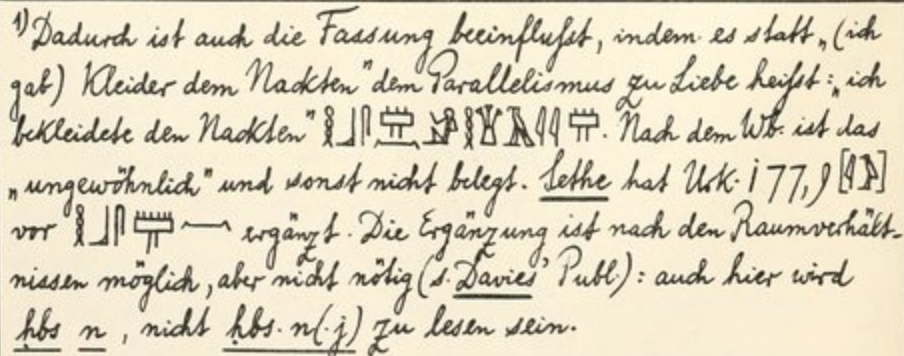 1) Dadurch ist auch die Fassung beeinflußt, indem es statt „(ich
gab) Kleider dem Nackten" dem Parallelismus zu Liebe heißt: „ich
bekleidete den Nackten" . Nach dem Wb. ist das
„ungewöhnlich" und sonst nicht belegt. Sethe hat Urk. I 77,9 [ ]
vor ergänzt. Die Ergänzung ist nach den Raumverhält-
nissen möglich, aber nicht nötig (s. Davies' Publ.): auch hier wird
ḥbs n, nicht ḥbs.n(.j) zu lesen sein.